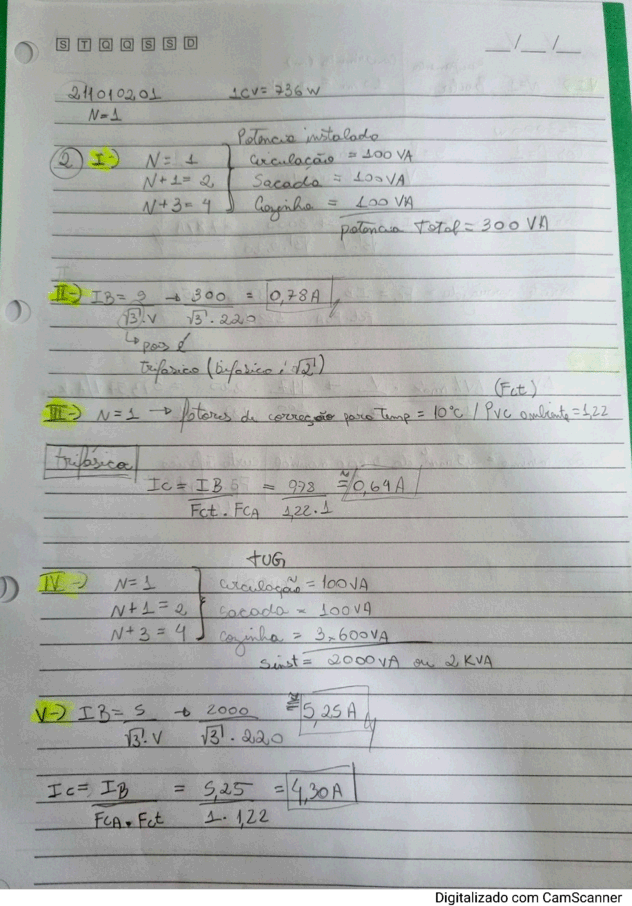 S T Q Q S S D
__/__/__
211010201 1CV = 736 W
N=1
Potencia instalada
2 I-) N= 1 circulação = 100 VA
N+1= 2 Sacada = 100 VA
N+3 = 4 Cozinha = 100 VA
potencia Total = 300 VA
II-) IB= S → 300 = 0,78A
√3.V √3.220
↳ pois é
trifasico (bifasico é √2)
(Fct)
III-) N=1 → fatores de correção para Temp = 10°C / PVC ambiente = 1,22
trifásica
Ic = IB = 978 ≅ 0,64A
Fct. FCA 1,22.1
TUG
IV-) N=1 circulação = 100VA
N+1 = 2 sacada = 100VA
N+3 = 4 cozinha = 3x600VA
Sinst = 2000VA ou 2 KVA
V-) IB= S → 2000 ≅ 5,25A
√3.V √3.220
Ic= IB = 5,25 = 4,30A
FCA.Fct 1.1,22
Digitalizado com CamScanner